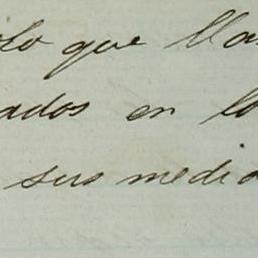 olo que lla
ados en lo
sus media